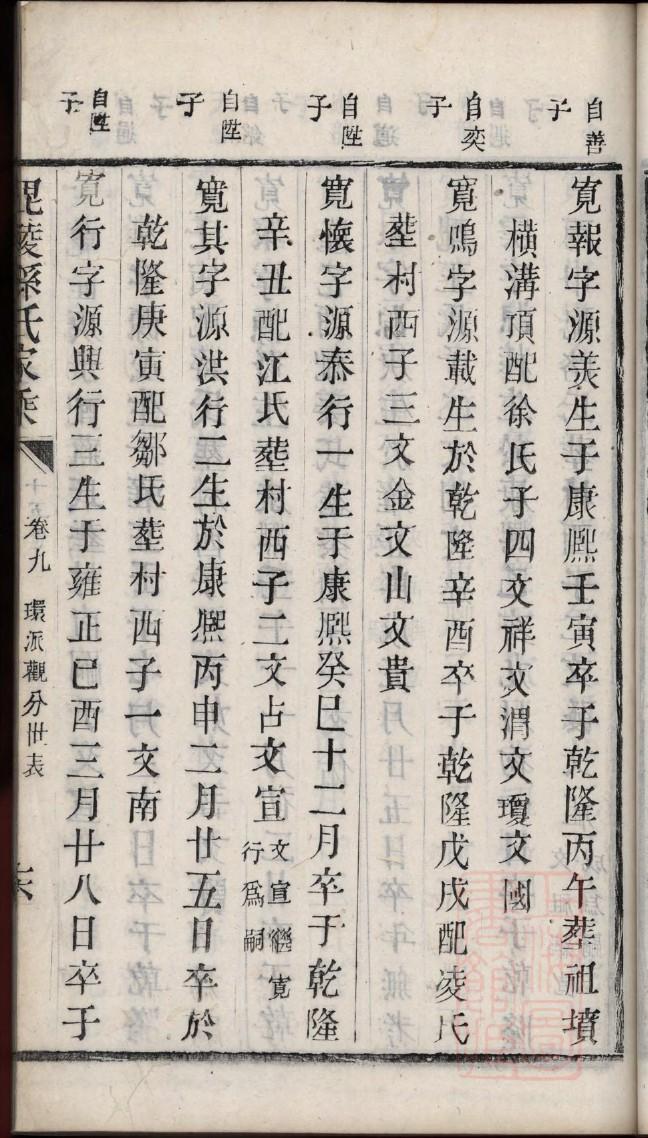 自善子
寛報字源羙生于康熈壬寅卒于乾隆丙午塟祖墳
橫溝頂配徐氏子四文祥文渭文瓊文國
自奕子
寛鳴字源載生於乾隆辛酉卒于乾隆戊戌配凌氏
塟村西子三文金文山文貴
自陞子
寛懷字源泰行一生于康熈癸巳十二月卒于乾隆
辛丑配江氏塟村西子二文占文宣文宣繼寛行爲嗣
自陞子
寛其字源洪行二生於康熈丙申二月廿五日卒於
乾隆庚寅配鄒氏塟村西子一文南
自陞子
寛行字源興行三生于雍正己酉三月廿八日卒于
毘陵孫氏家乘
卷九 環派觀分世表